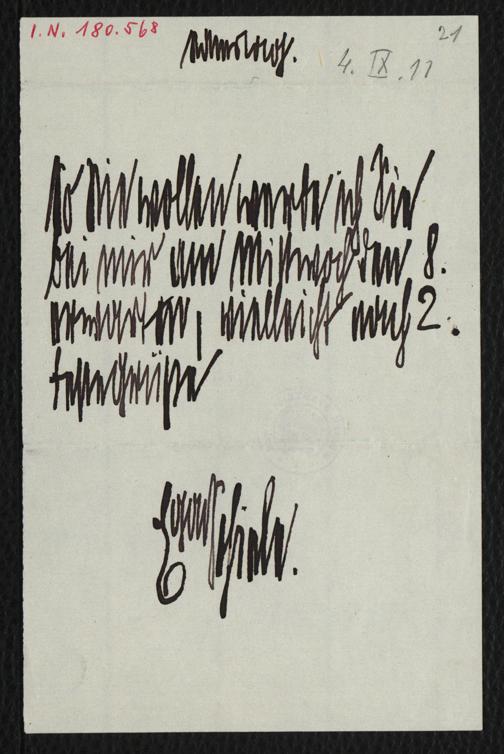 I.N. 180.568
21
4. IX. 11
So Sie wollen werde ich Sie
bei mir am Mittwoch den 8.
erwarten, vielleicht nach 2.
Grüße
Egon Schiele.